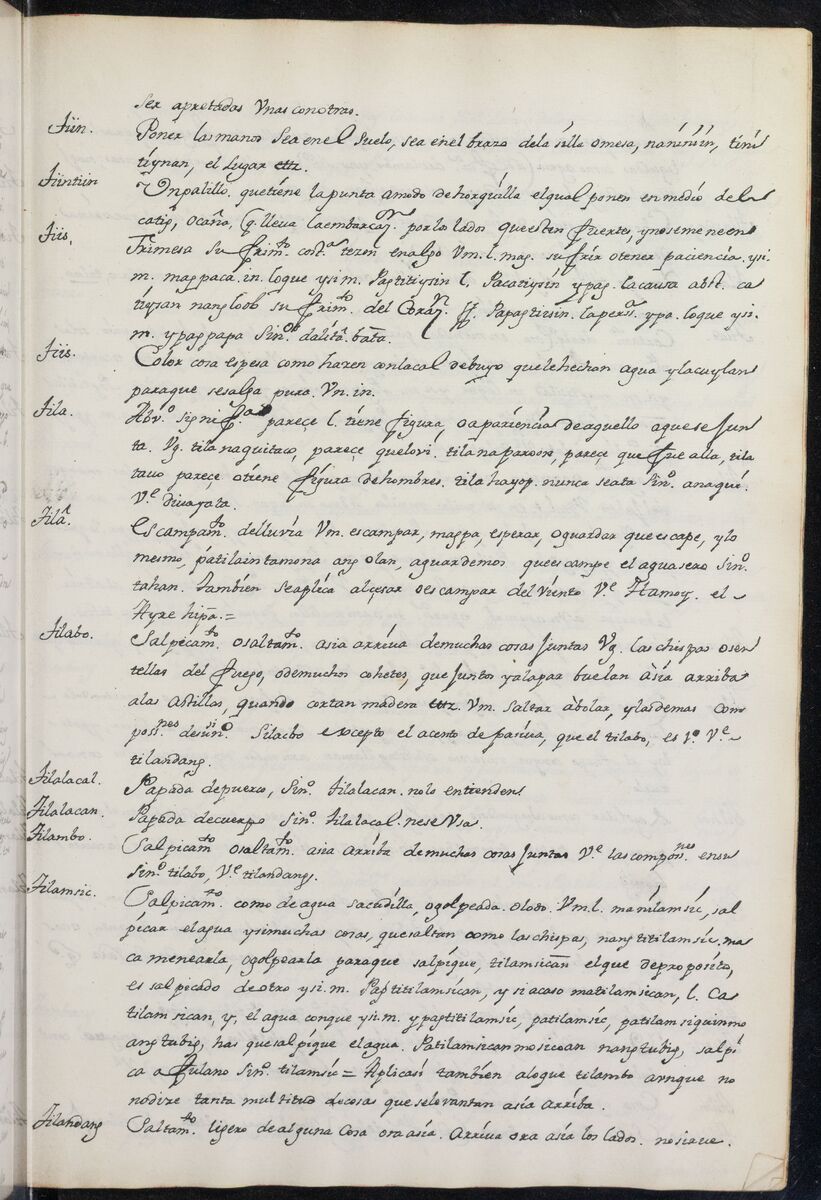 ser apretadas Vnas conotras.
Tiin. Poner las manos sea enel suelo, sea enel brazo dela silla omesa, naniniin, tinit
tiynan, el lugar ettz.
Tiintiin Vnpalillo quetiene lapunta amodo dehorquilla elqual ponen enmedio del
catig, ocaña, q. lleva laembarcaz.on por los lados queesten fuertes, ynosemeneen
Tiis, Firmesa sufrim.to const.a tezon enalgo Vm. l. mag. sufrir otener paciencia. ysi.
m. magpaca. in. loque ysi m. Pagtitiysin l. Pacatiysin ypag. lacausa abst. ca
tiysan nangloob sufrim.to del Coraz.n ff. Papagtiisin. lapers.a ypa. loque ysi.
m. ypagpapa Sin.o dalita. bata.
Tiis. Color cosa espesa como hazen conlacal debuyo quelehechan agua ylacuylan
paraque sesalga pura. Vn. in.
Tila. Abv.o signif.ca pareçe l. tiene figura, o apariencia deaquello aquese Jun
ta. Vg. tila naquitaco, pareçe quelovi. tila naparoon, pareçe que fue alla, tila
tauo pareçe otiene figura dehombres. tila hayop. nunca seata Sin.o anaqui.
V.e diuayata.
Tila. Escampam.to delluvia Vm. escampar, magpa, esperar, oguardar que escape, ylo
mesmo, patilaintamona ang olan, aguardemos queescampe el aguasero sin.o
tahan. tambien seaplica alçesar oescampar del viento V.e Hamoy. el
Ayre hipa. =
Tilabo. Salpicam.to osaltam.to asia arriva demuchas cosas Juntas Vg. las chispas osen
tellas del fuego, odemuchos cohetes, que Juntos yalapar buelan àsia arriba
alas astillas, quando cortan madera ettz. Vm. saltar àbolar, ylasdemas com
poss.nes desusin.o Silacbo excepto el acento de pasiva, que el tilabo, es 1.o V.e
tilandang.
Tilalacal. Papada depuerco, Sin.o tilalacan. nolo entienden
Tilalacan. Papada decuerpo Sin.o tilalacal. nese Vsa.
Tilambo. Salpicam.to osaltam.to asia arriba demuchas cosas Juntas V.e las compon.nes ensu
sin.o tilabo, V.e tilandang.
Tilamsic. Salpicam.to como de agua sacudilla, ogolpeada. olodo. Vm. l. manilamsic, sal
picar el agua ysimuchas cosas, que saltan como las chispas, nangtitilamsic. ma
ca menearla, ogolpearla paraque salpique, tilamsican el que deproposito,
es salpicado de otro ysi. m. Pagtitilamsican, y si acaso matilamsican, l. Ca
tilamsican, y, el agua conque ysi. m. ypagtitilamsic, patilamsic, patilamsiquinmo
angtubig, has quesalpique elagua. Patilamsicanmosicoan nangtubig, salpi
ca a fulano Sin.o tilamsic = Aplicasi tambien aloque tilambo aunque no
nodize tanta multitud decosas que selevantan asia arriba.
Tilandang Saltam.to ligero de alguna Cosa ora asia. Arriva ora asia los lados. nosiave.